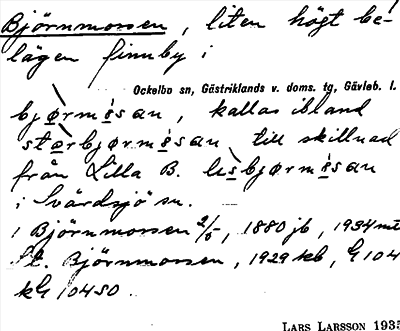 Björnmossen, liten högt be-
lägen finnby i
Ockelbo sn, Gästriklands v. doms. tg, Gävleb. l.
bjørmåsan, kallas ibland
størbjørmåsan till skillnad
från Lilla B. lisbjørmåsan
i Svärdsjö sn.
1 Björnmossen 2/5, 1880 jb, 1934 mt
St. Björnmossen, 1929 kb, G 104
kG 10450.
LARS LARSSON 1935